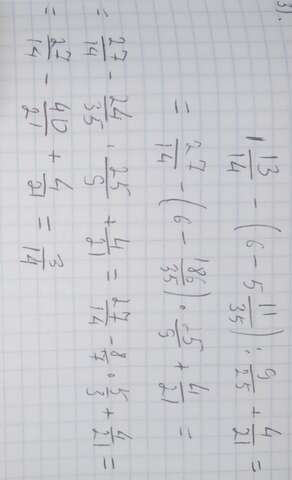 3).
1 13/14 - (6 - 5 11/35) : 9/25 + 4/21 =
= 27/14 - (6 - 186/35) · 25/9 + 4/21 =
= 27/14 - 24/35 · 25/9 + 4/21 = 27/14 - 8/7 · 5/3 + 4/21 =
= 27/14 - 40/21 + 4/21 = 3/14